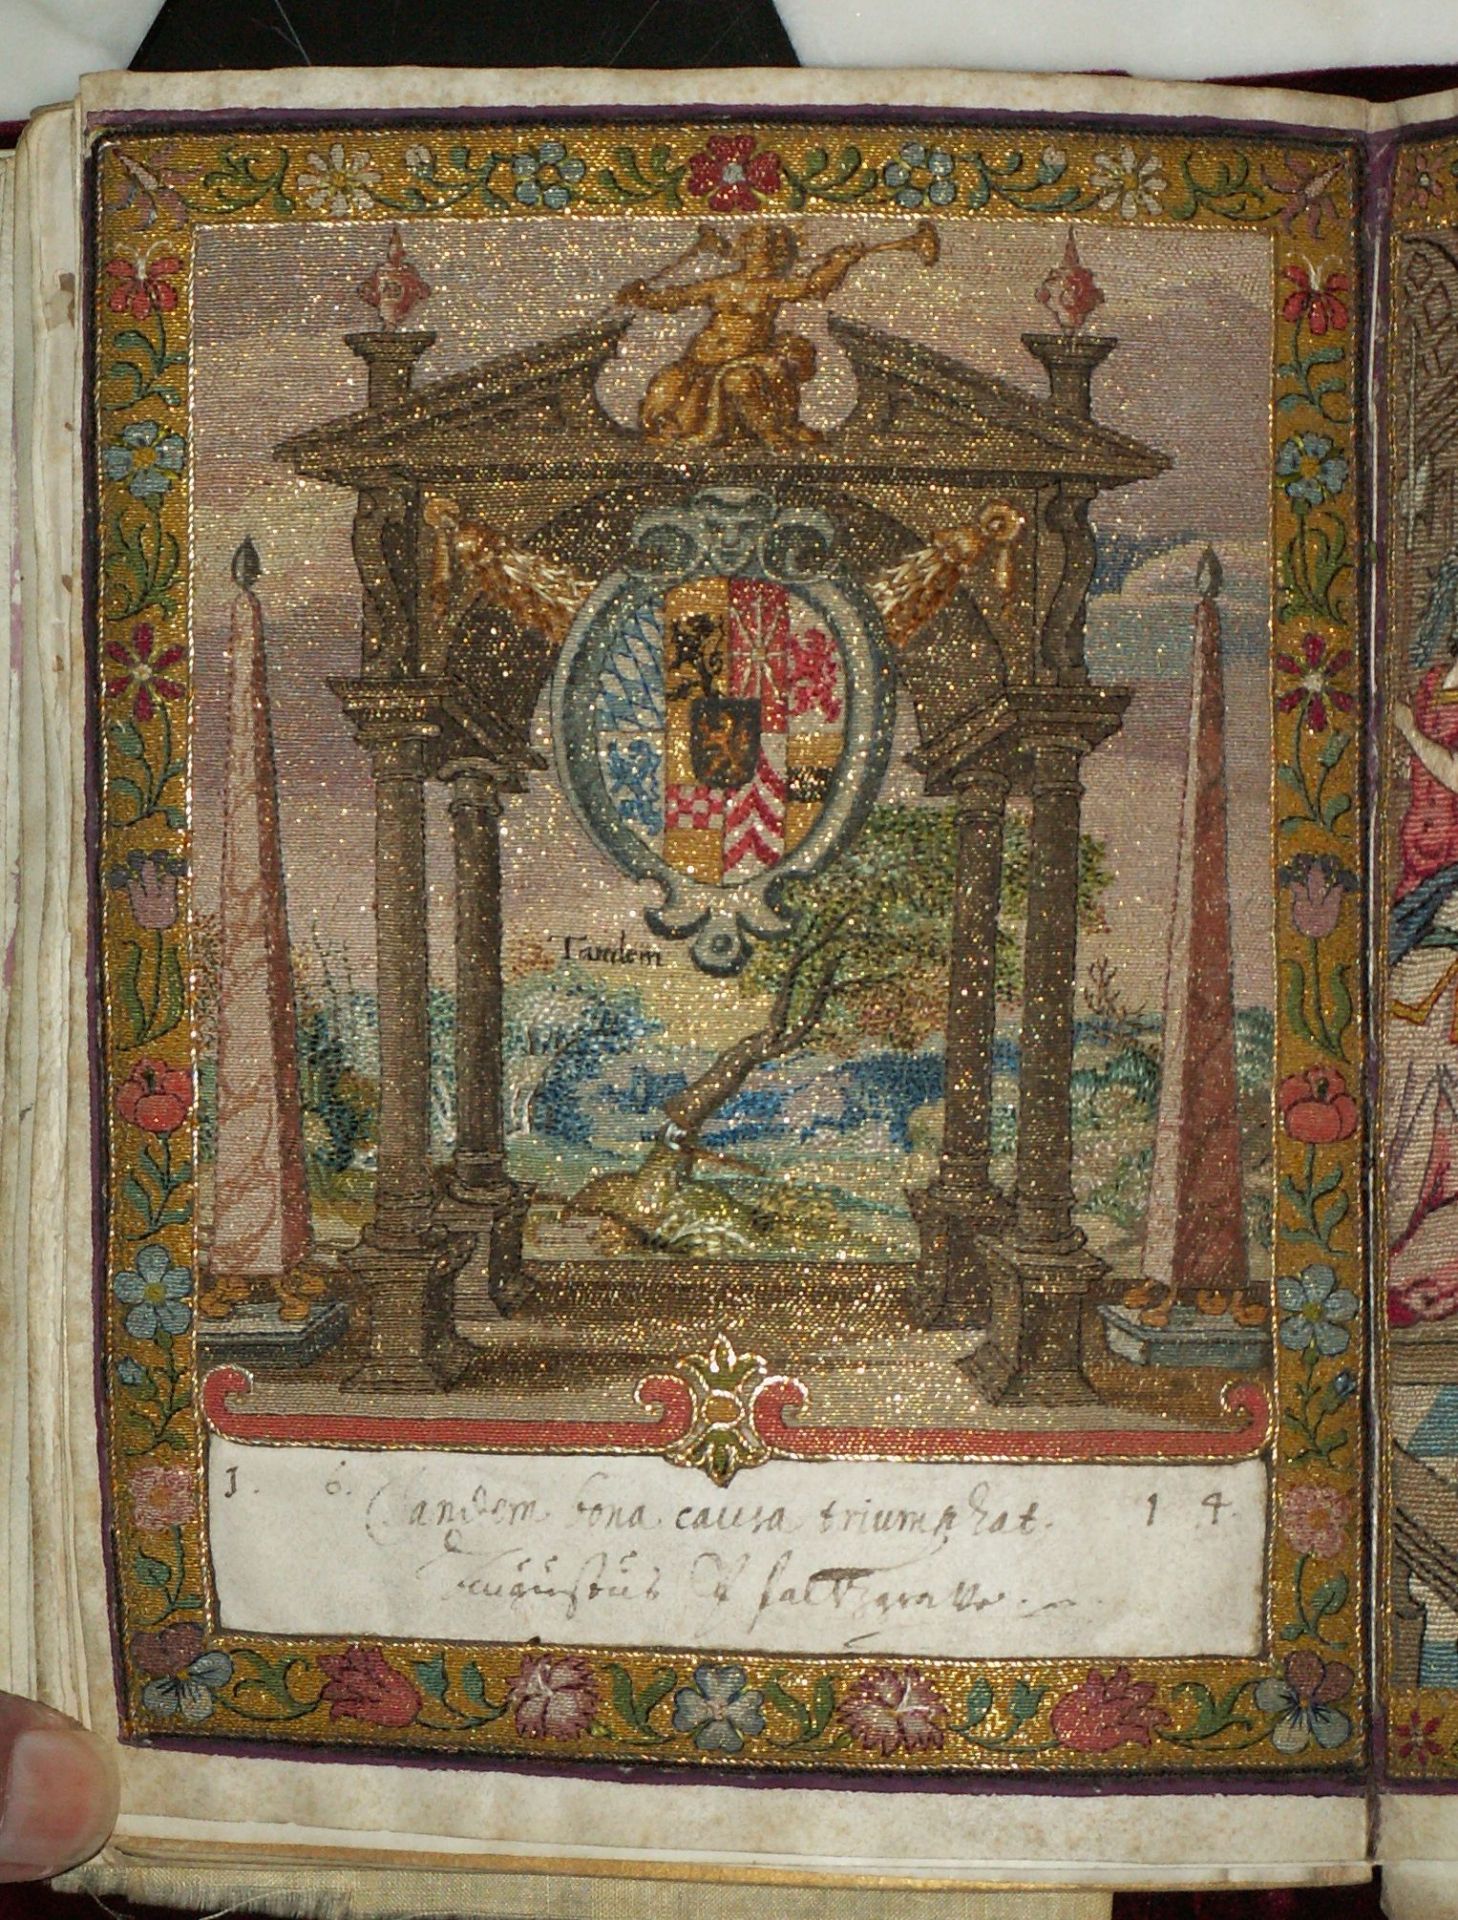 Tandem
1. 6. Tandem bona causa triumphat. 1 4.
Augustus Pfaltzgrave.